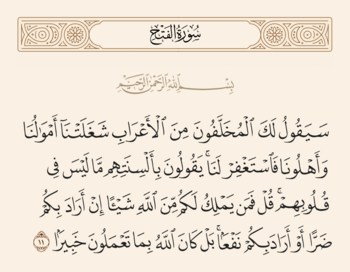 سُورَةُ الْفَتْحِ
بِسْمِ اللَّهِ الرَّحْمَٰنِ الرَّحِيمِ
سَيَقُولُ لَكَ الْمُخَلَّفُونَ مِنَ الْأَعْرَابِ شَغَلَتْنَا أَمْوَالُنَا
وَأَهْلُونَا فَاسْتَغْفِرْ لَنَا ۚ يَقُولُونَ بِأَلْسِنَتِهِم مَّا لَيْسَ فِي
قُلُوبِهِمْ ۚ قُلْ فَمَن يَمْلِكُ لَكُم مِّنَ اللَّهِ شَيْئًا إِنْ أَرَادَ بِكُمْ
ضَرًّا أَوْ أَرَادَ بِكُمْ نَفْعًا ۚ بَلْ كَانَ اللَّهُ بِمَا تَعْمَلُونَ خَبِيرًا ١١